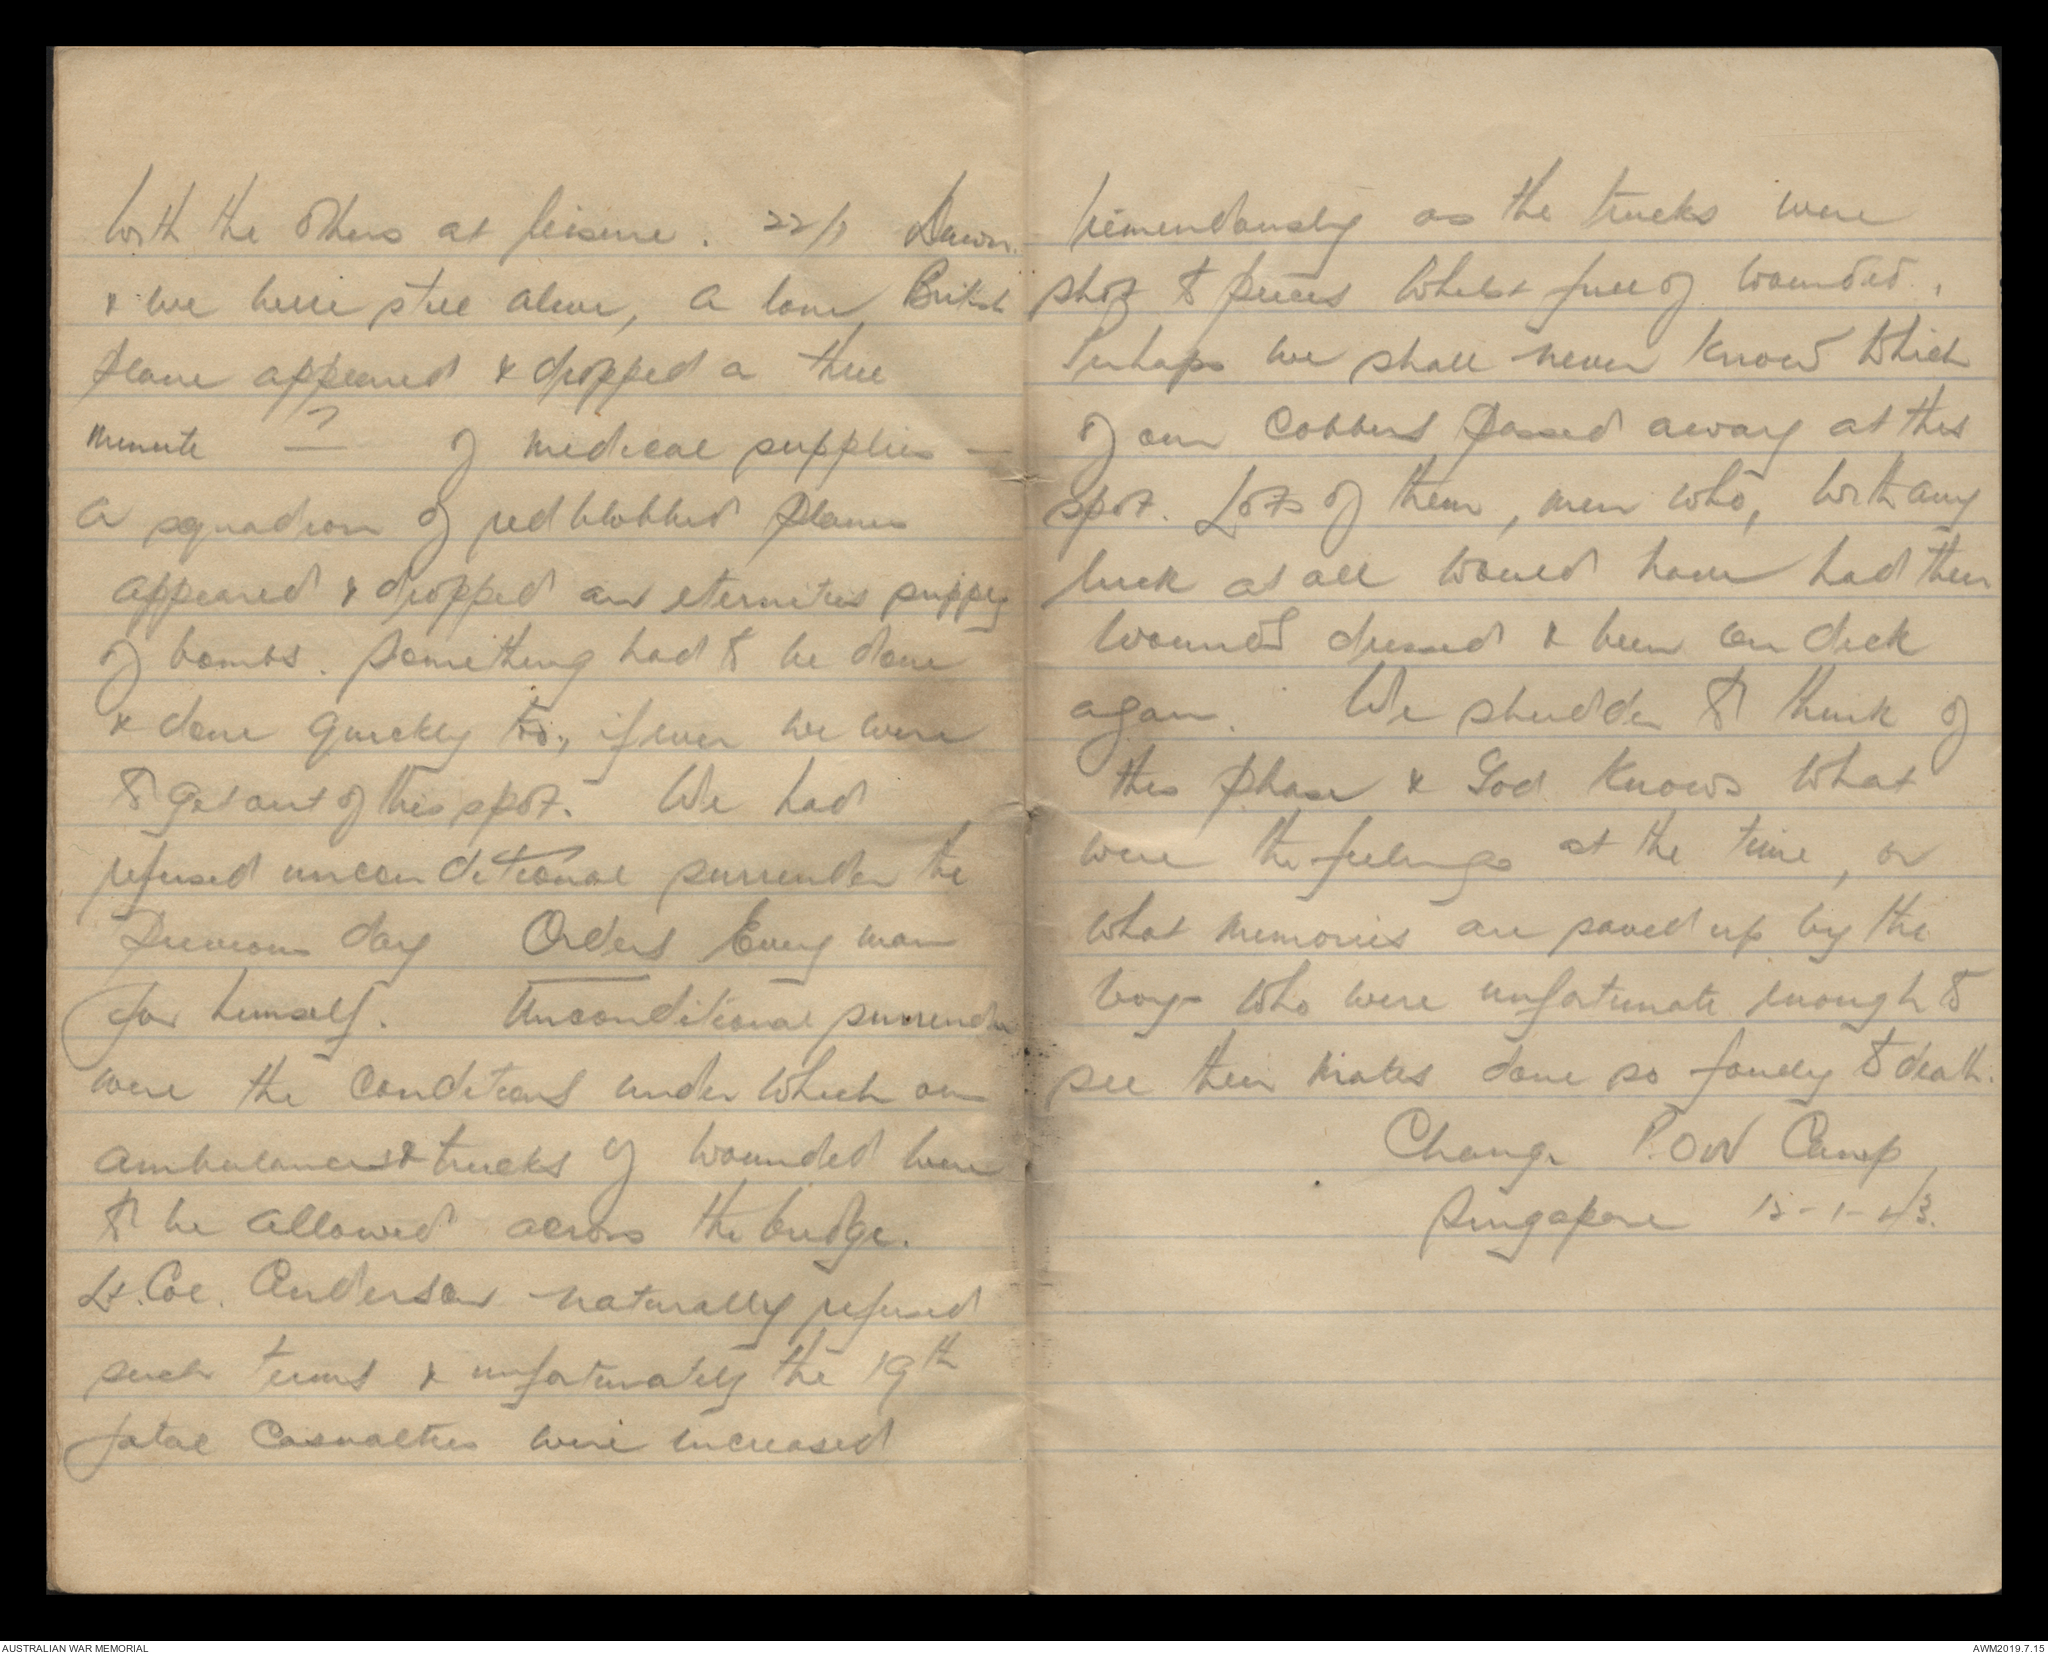 with the others at leisure. 22/1 Dawn.
& we were still alive, a lone British
plane appeared & dropped a three
minute ? of medical supplies —
a squadron of red blobbed planes
appeared & dropped an eternities supply
of bombs. Something had to be done
& done quickly too, if ever we were
to get out of this spot. We had
refused unconditional surrender the
previous day Orders Every man
for himself. Unconditional surrender
were the conditions under which our
ambulances & trucks of wounded were
to be allowed across the bridge.
Lt. Col. Anderson naturally refused
such terms & unfortunately the 19th
fatal casualties were increased
tremendously as the trucks were
shot to pieces whilst full of wounded.
Perhaps we shall never know which
of our cobbers passed away at this
spot. Lots of them, men who, with any
luck at all would have had their
wounds dressed & been on deck
again. We shudder to think of
this phase & God knows what
were the feelings at the time, or
what memories are saved up by the
boys who were unfortunate enough to
see their mates done so foully to death.
Changi P.O.W Camp
Singapore 15-1-43.
AUSTRALIAN WAR MEMORIAL
AWM2019.7.15